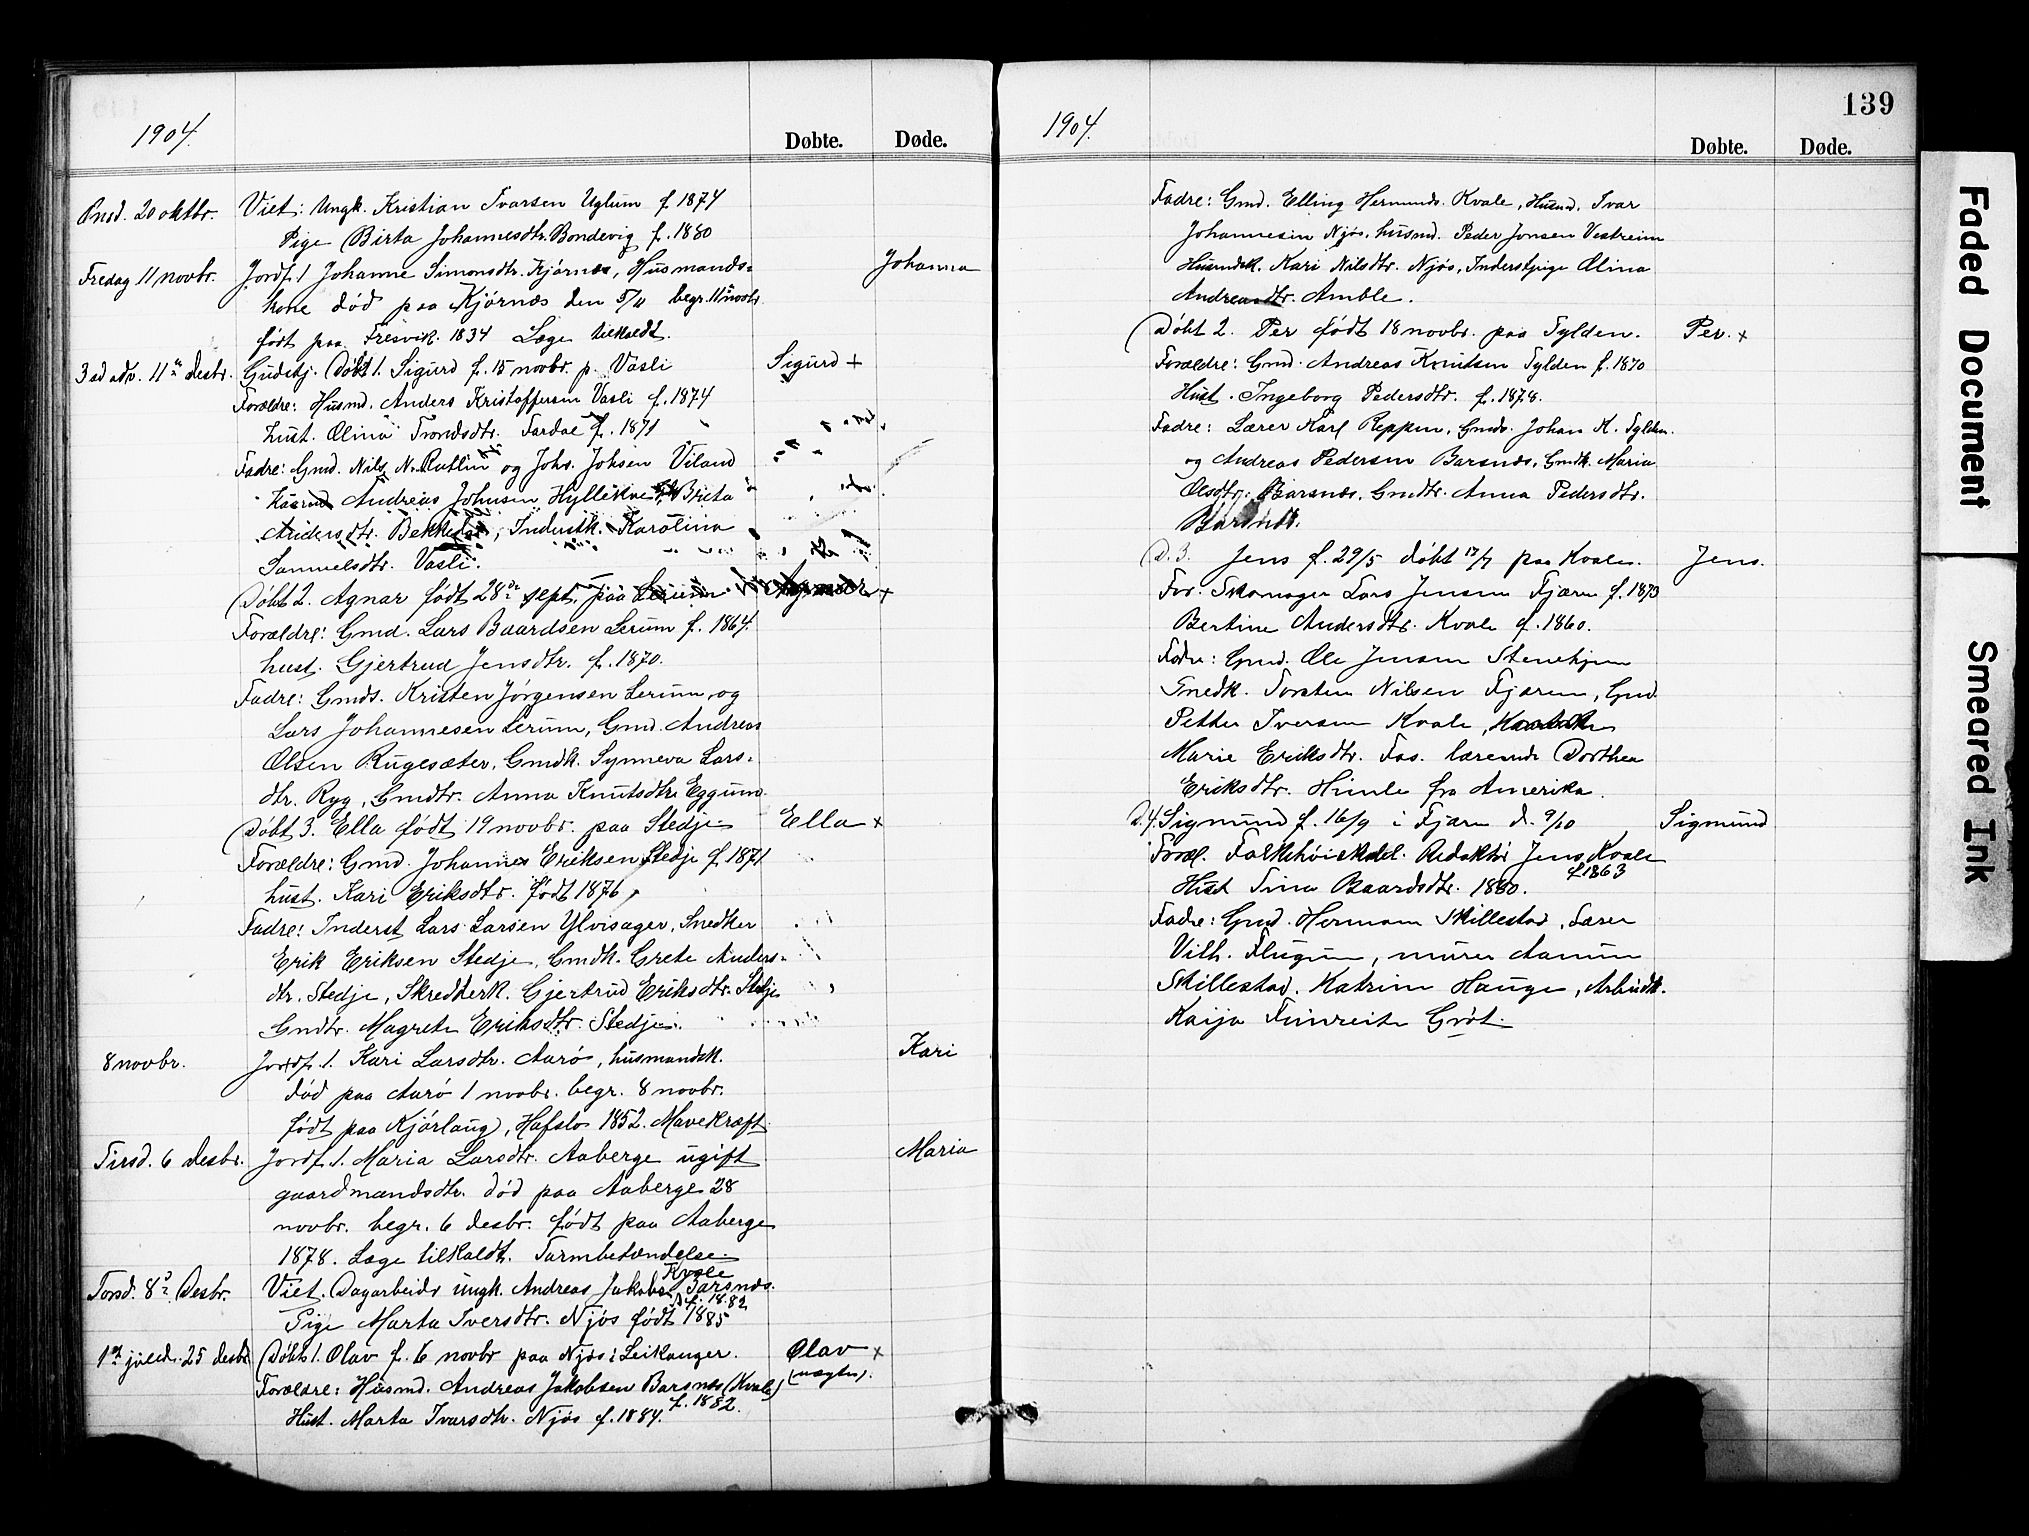 1904.
Døbte.
Døde.
Onsd. 20 oktbr. Viet: Ungk. Kristian Ivarsen Uglum f. 1874
Pige Birta Johannesdtr. Bondevig f. 1880
Fredag 11 novbr. Jordf. 1 Johanne Simonsdtr. Kjørnes, Husmands- Johanna
kone død paa Kjørnæs den 5/11 begr. 11 novbr.
født paa Fresvik. 1834 Læge tilkaldt.
3 sd adv. 11te desbr. Gudstj. Døbt 1. Sigurd f. 15 novbr. p. Vasli Sigurd +
Forældre: Husmd. Anders Kristoffersen Vasli f. 1874
hust. Olina Trondsdtr. Fardal f. 1871
Fadre: Gmd. Nils N. Rutlin og Johs. Johsen Viland
Husmd Andreas Johnsen Hyllekve, Brita
Andersdtr. Inderstk. Karolina
Samuelsdtr. Vasli.
Døbt 2. Agnar født 28de sept. paa Lerum. Agnar +
Forældre: Gmd. Lars Baardsen Lerum f. 1864.
hust. Gjertrud Jensdtr. f. 1870.
Fadre: Gmds. Kristen Jørgensen Lerum, og
Lars Johannesen Lerum, Gmd. Andreas
Olsen Rugesæter, Gmdk. Synneva Lars-
dtr. Ryg, Gmdtr. Anna Knutsdtr. Eggum.
Døbt 3. Ella født 19 novbr. paa Stedje Ella +
Forældre: Gmd. Johannes Eriksen Stedje f. 1871
hust. Kari Eriksdtr. født 1876,
Fadre: Inderst Lars Larsen Ylvisager, Snedker
Erik Eriksen Stedje, Gmdk. Grete Anders-
dtr. Stedje, Skredderk. Gjertrud Eriksdtr. Stedje
Gmdtr. Magrete Eriksdtr. Stedje.
8 novbr. Jordf. 1. Kari Larsdtr. Aarø, husmandsk. Kari
død paa Aarø 1 novbr. begr. 8 novbr.
født paa Kjørlaug, Hafslo 1852. Mavekræft
Tirsd. 6 desbr. Jordf. 1. Maria Larsdtr. Aaberge ugift Maria
gaardmandsdtr. død paa Aaberge 28
novbr. begr. 6 desbr. født paa Aaberge
1878. Læge tilkaldt. Tarmbetændelse.
Kvale
Torsd. 8de Desbr. Viet. Dagarbeider ungk. Andreas Jakobs. Barsnæs.
f. 1882
Pige Marta Iversdtr. Njøs født 1885
1ste juled. 25 desbr Døbt 1. Olav f. 6 novbr paa Njøs i Leikanger. Olav +
(uægte).
Forældre: Husmd. Andreas Jakobsen Barsnes (Kvale)
f. 1882.
Hust. Marta Ivarsdtr. Njøs f. 1884.
139
1904.
Døbte.
Døde.
Fadre: Gmd. Elling Hermunds. Kvale, Husmd. Ivar
Johannesen Njøs, husmd. Peder Jonsen Vestreim
Husmdsk. Kari Nilsdtr. Njøs, Inderstpige Olina
Andreasdtr. Amble.
Døbt 2. Per født 18 novbr. paa Fylden. Per. +
Forældre: Gmd. Andreas Knutsen Fylden f. 1870
Hust. Ingeborg Pedersdtr. f. 1878.
Fadre: Lærer Karl Reppen, Gmds. Johan K. Fylden.
og Andreas Pedersen Barsnes, Gmdk. Maria
Olsdtr. Barsnæs, Gmdtr. Anna Pedersdtr.
Barsnes.
D. 3. Jens f. 29/5 døbt 17/7 paa Kvale. Jens.
For. Skomager Lars Jensen Fjæren f. 1873
Bertine Andersdtr. Kvale f. 1860.
Fadre: Gmd. Ole Jensen Stenehjem
Snedk. Torsten Nilsen Fjæren, Gmd.
Petter Iversen Kvale,
Marie Eriksdtr. Fos. lærerinde Dorthea
Eriksdtr. Himle fra Amerika.
D. 4. Sigmund f. 16/9 i Fjæren d. 9/10 Sigmund
Foræl. Folkehøiskolel. Redaktør Jens Kvale
f. 1863
Hust Tina Baardsdtr. 1880.
Fadre: Gmd. Hermann Skillestad, Lærer
Vilh. Flugum, murer Aamun
Skillestad. Katrine Hauge, Arbeidk.
Kaija Finreite Grøt.
Faded Document
Smeared Ink